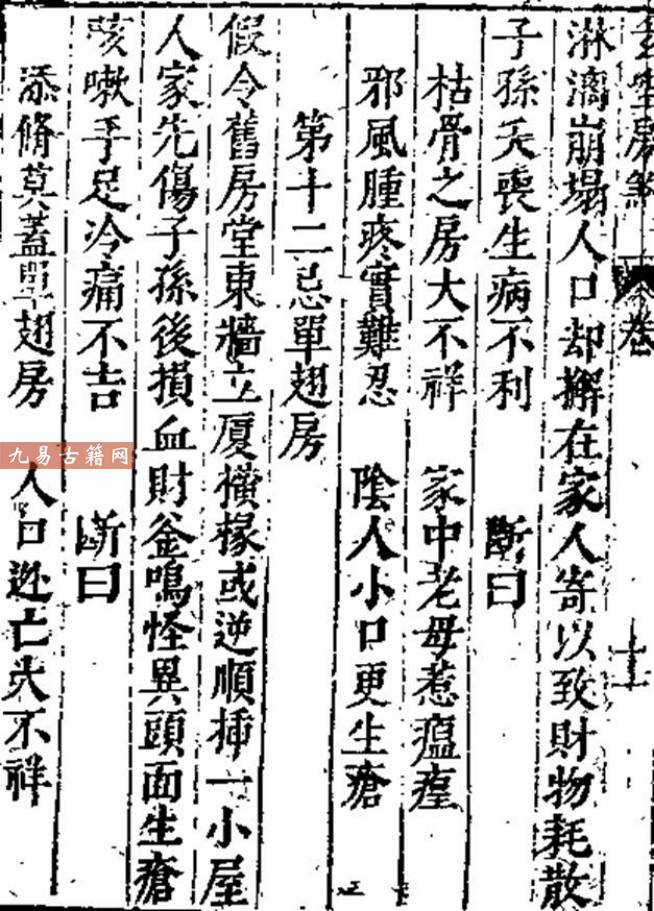 卷
淋漓崩塌人口却擗在家人寄以致財物耗散
子孫夭喪生病不利 斷曰
枯骨之房大不祥 家中老母惹瘟㾮
邪風腫疼實難忍 陰人小口更生瘡
第十二忌單翅房
假令舊房堂東牆立厦横椽或逆順挿一小屋
人家先傷子孫後損血財釜鳴怪異頭面生瘡
咳嗽手足冷痛不吉 斷曰
添脩莫蓋單翅房 人口迯亡大不祥
九易古籍网